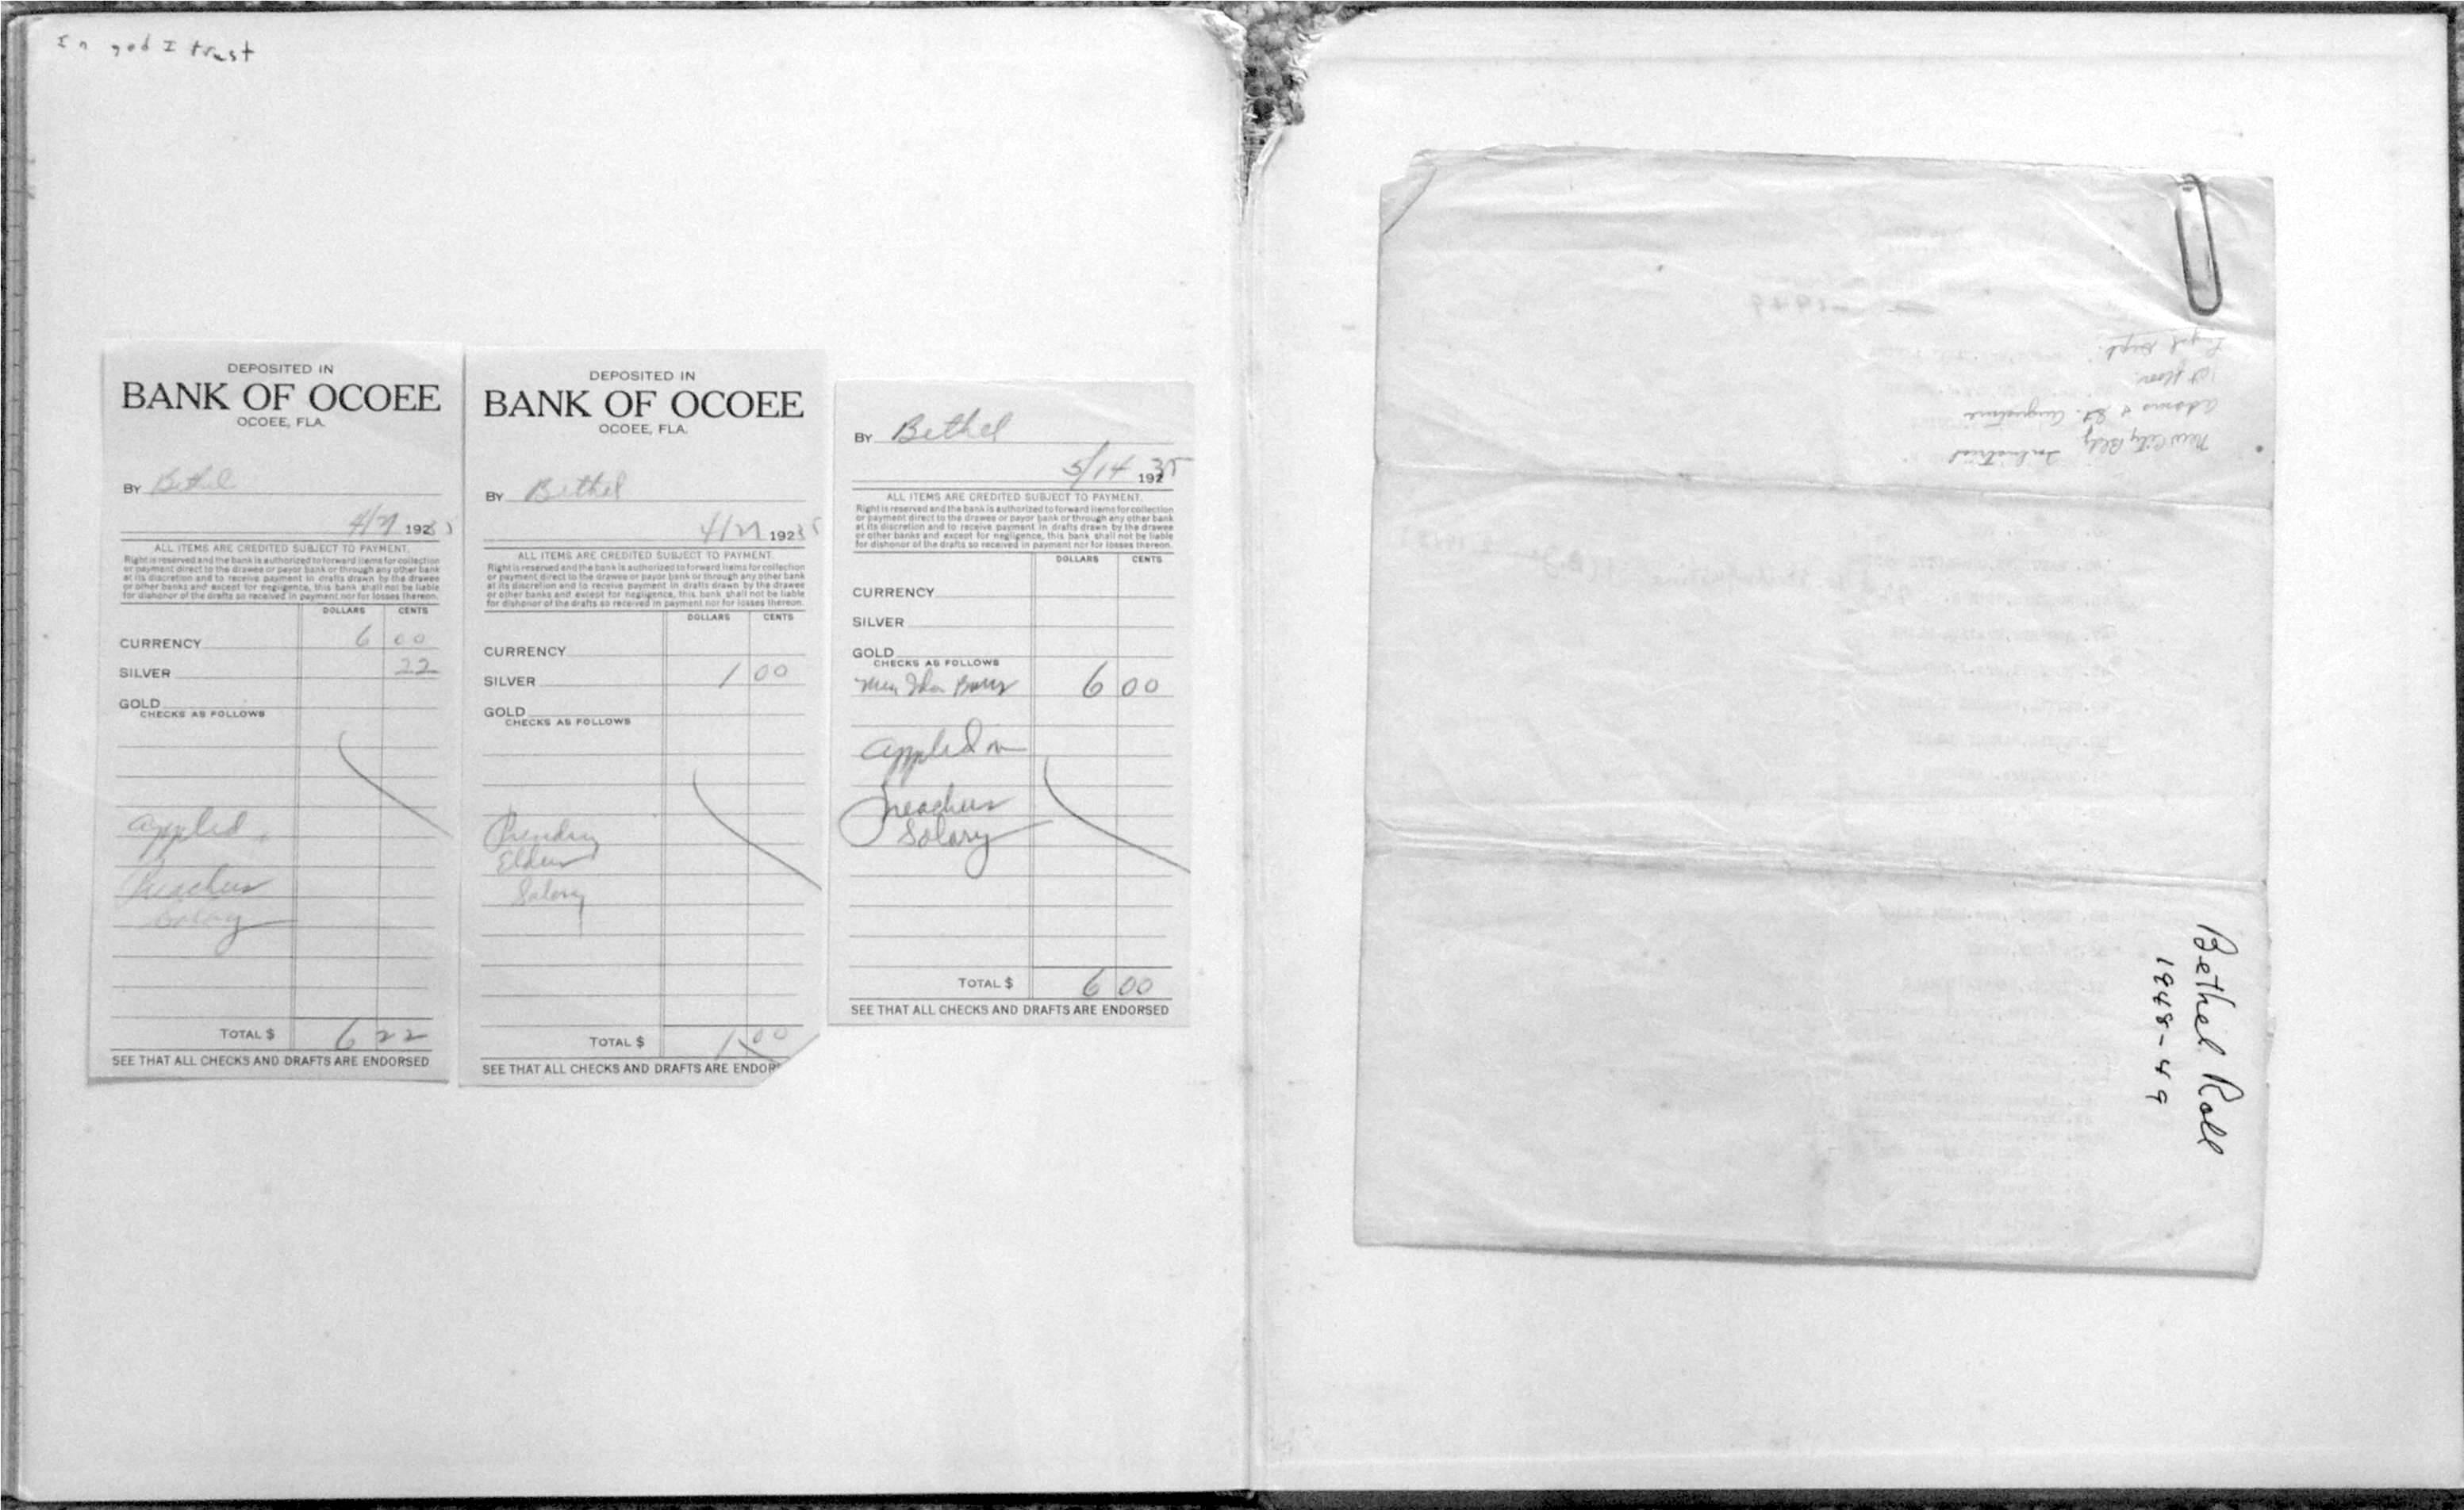 In god I trust
DEPOSITED IN
BANK OF OCOEE
OCOEE, FLA.
BY Bethel
4/7 1935
ALL ITEMS ARE CREDITED SUBJECT TO PAYMENT.
Right is reserved and the bank is authorized to forward items for collection
or payment direct to the drawee or payor bank or through any other bank
at its discretion and to receive payment in drafts drawn by the drawee
or other banks and except for negligence, this bank shall not be liable
for dishonor of the drafts so received in payment nor for losses thereon.
DOLLARS CENTS
CURRENCY 6 00
SILVER 22
GOLD
CHECKS AS FOLLOWS
Applied
Preachers
Salary
TOTAL $ 6 22
SEE THAT ALL CHECKS AND DRAFTS ARE ENDORSED
DEPOSITED IN
BANK OF OCOEE
OCOEE, FLA.
BY Bethel
4/27 1935
ALL ITEMS ARE CREDITED SUBJECT TO PAYMENT.
Right is reserved and the bank is authorized to forward items for collection
or payment direct to the drawee or payor bank or through any other bank
at its discretion and to receive payment in drafts drawn by the drawee
or other banks and except for negligence, this bank shall not be liable
for dishonor of the drafts so received in payment nor for losses thereon.
DOLLARS CENTS
CURRENCY
SILVER 1 00
GOLD
CHECKS AS FOLLOWS
Elders
Salary
TOTAL $ 1 00
SEE THAT ALL CHECKS AND DRAFTS ARE ENDOR
BY Bethel
5/14 1935
ALL ITEMS ARE CREDITED SUBJECT TO PAYMENT.
Right is reserved and the bank is authorized to forward items for collection
or payment direct to the drawee or payor bank or through any other bank
at its discretion and to receive payment in drafts drawn by the drawee
or other banks and except for negligence, this bank shall not be liable
for dishonor of the drafts so received in payment nor for losses thereon.
DOLLARS CENTS
CURRENCY
SILVER
GOLD
CHECKS AS FOLLOWS
6 00
Applied on
Preachers
Salary
TOTAL $ 6 00
SEE THAT ALL CHECKS AND DRAFTS ARE ENDORSED
New City Bldg Industrial
Adams & St. Augustine
1st floor
Legal Dept.
Bethel Roll
1948-49